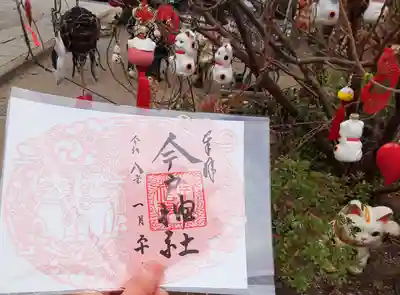 奉拝
今戸神社
令和八年一月